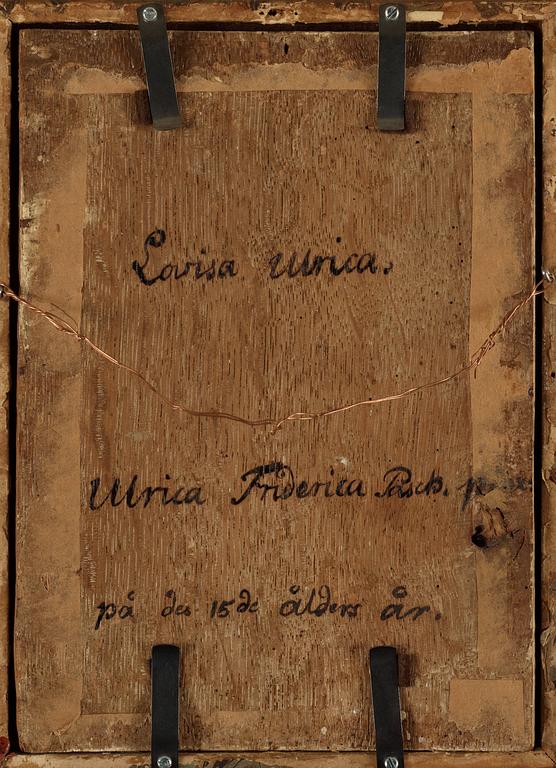 Lovisa Ulrica.
Ulrica Friderica Pasch.
på des 15de ålders år.